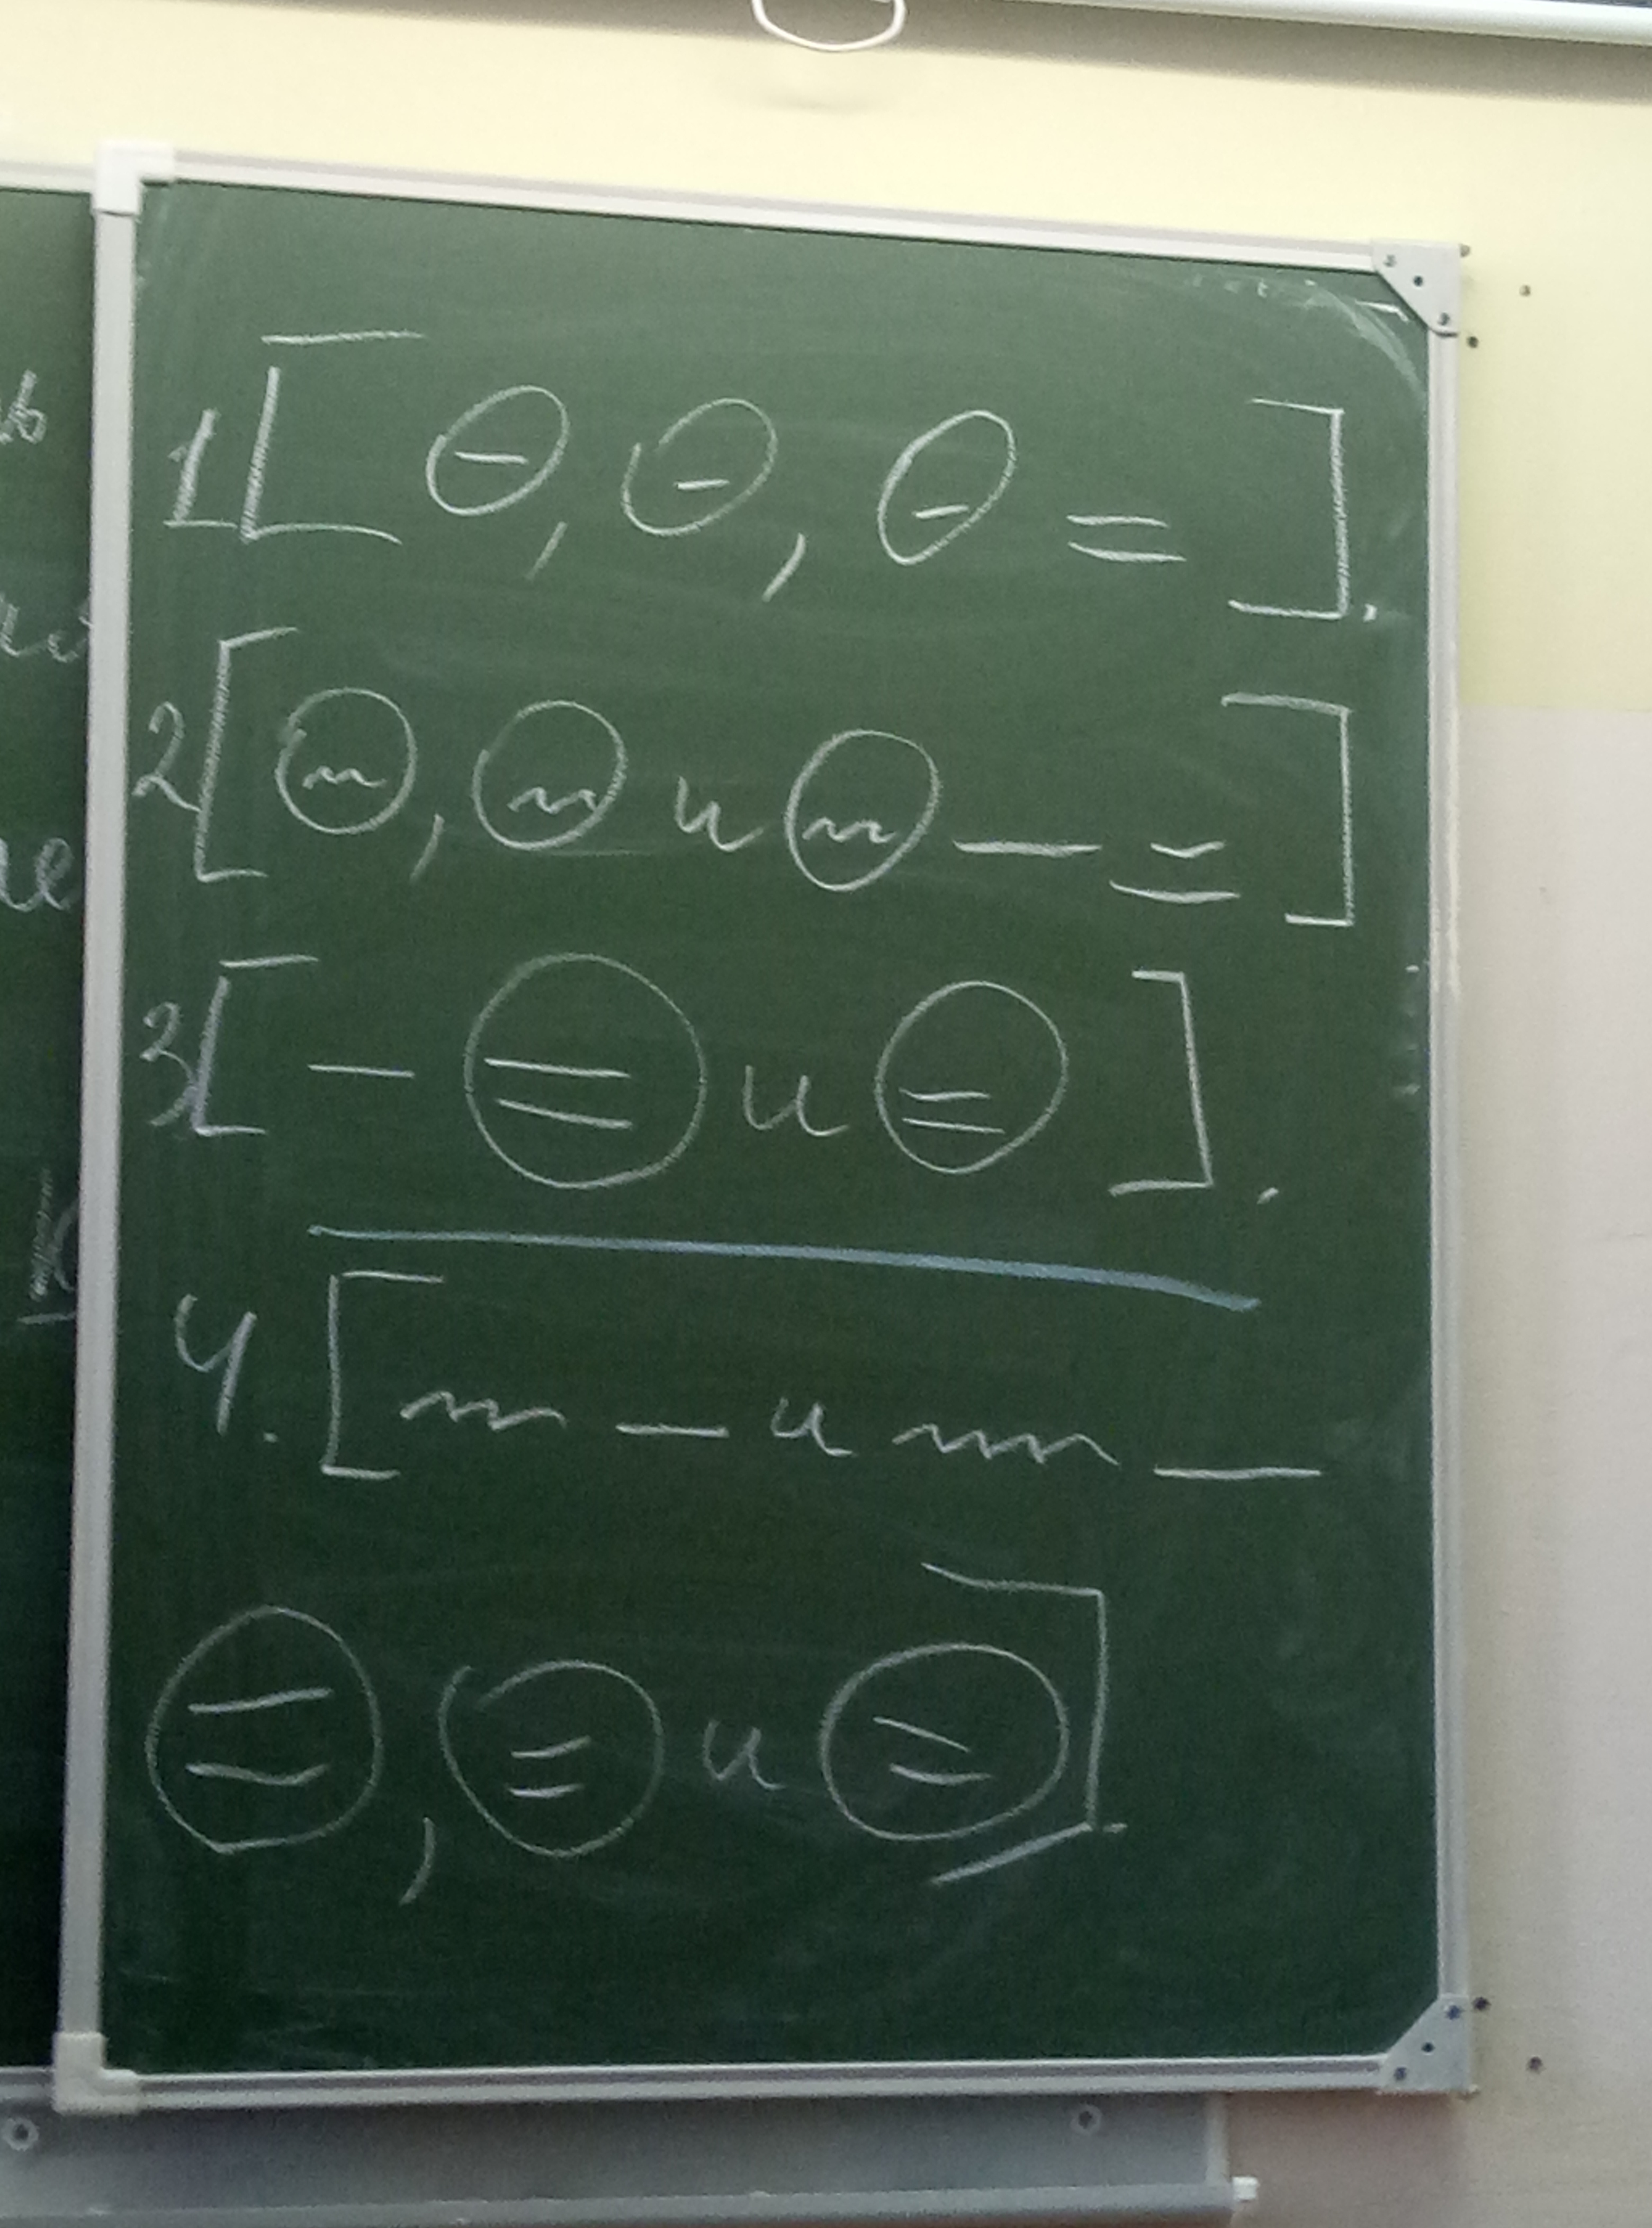 1[ ⊖, ⊖, ⊖ = ].
2[ (~), (~) и (~) — = ]
3[ — (=) и (=) ].
4. [ ~~~ — и ~~~ —
(=), (=) и (=) ].